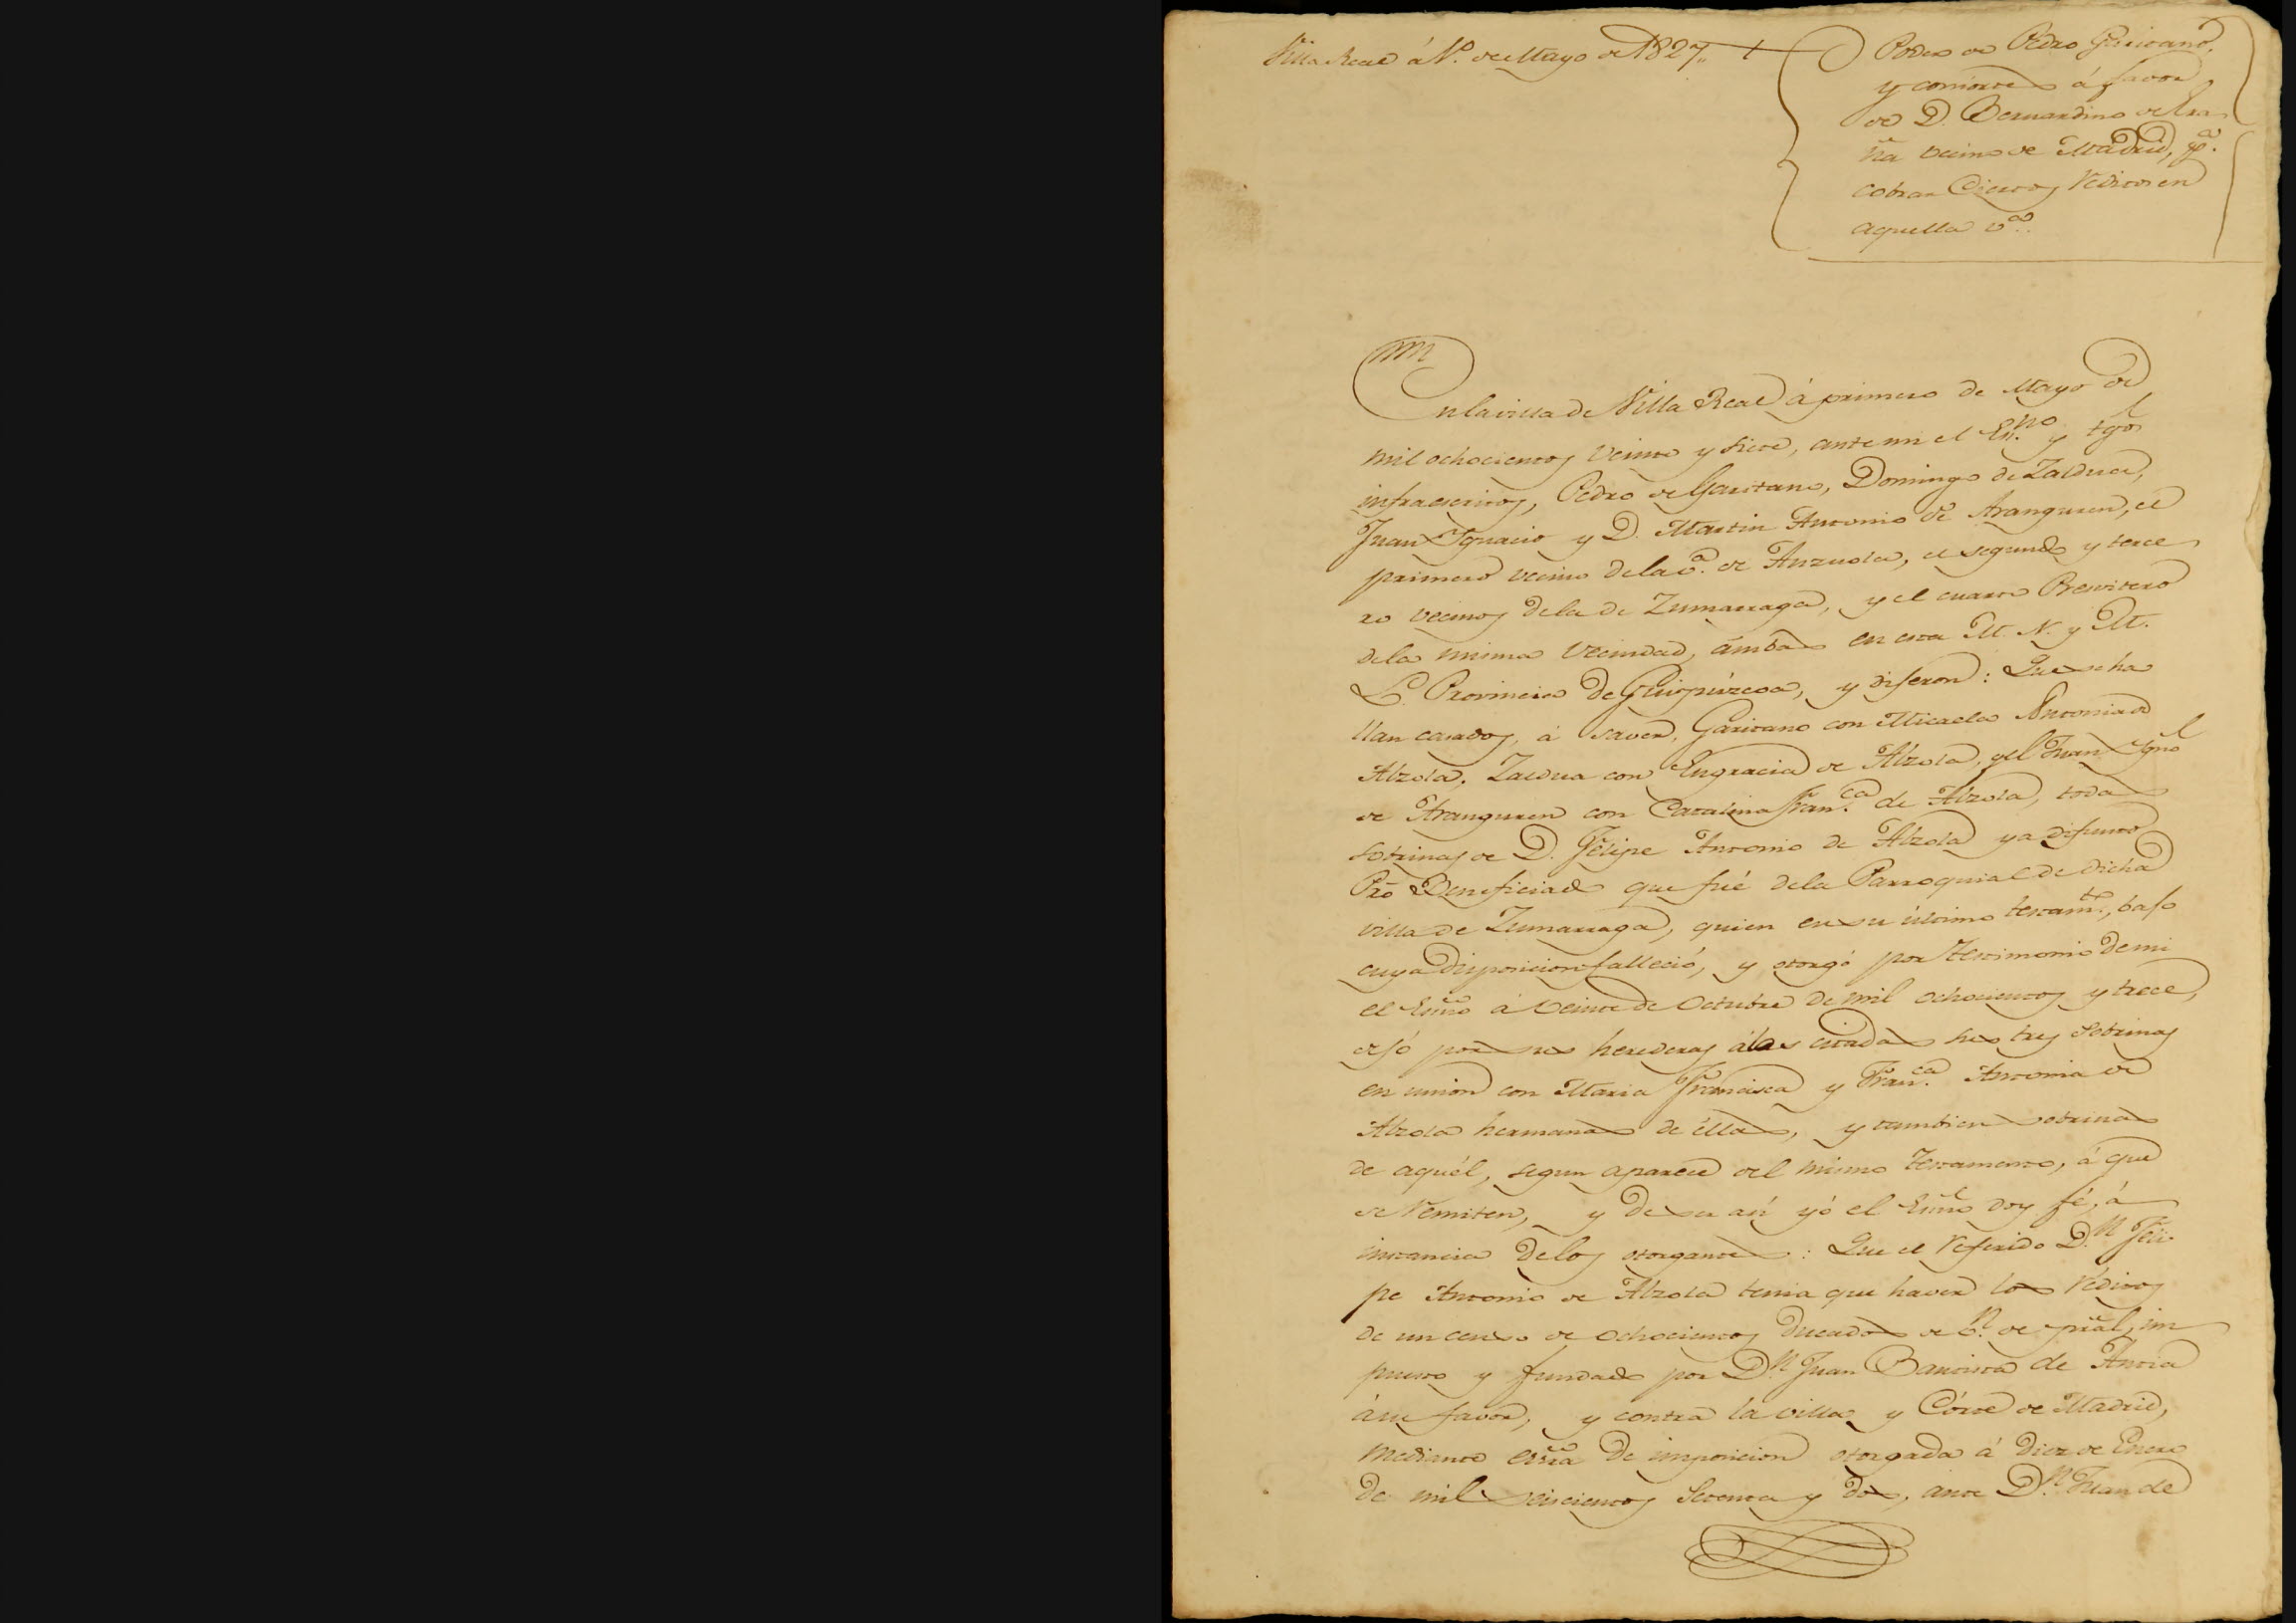 Villa Real á 1º. de Mayo de 1827.,
Poder de Pedro Garitano,
y consortes á favor
de D. Bernardino de Ira
ña vecino de Madrid, pª.
cobrar Ciertos Réditos en
aquella vª.
En la villa de Villa Real á primero de Mayo de
mil ochocientos veinte y siete, ante mi el Esnº y tgos
infraescritos, Pedro de Garitano, Domingo de Zaldua,
Juan Ignacio y D. Martin Antonio de Aranguren, el
primero vecino de la vª. de Anzuola, el segundo y terce
ro vecinos de la de Zumarraga, y el cuarto Presvitero
de la misma vecindad, ámbas en esta M. N. y M.
L. Provincia de Guipúzcoa, y dijeron: Que se ha
llan casados, á saver, Garitano con Micaela Antonia de
Alzola, Zaldua con Engracia de Alzola, y el Juan Ignº
de Aranguren con Catalina Franca. de Alzola, todas
sobrinas de D. Felipe Antonio de Alzola ya difunto
Pro Beneficiado que fué de la Parroquial de dicha
villa de Zumarraga, quien en su último testamto., bajo
cuya disposicion falleció, y otorgó por testimonio de mi
el Esnno á veinte de Octubre de mil ochocientos y trece,
dejó por sus herederas á las citadas sus tres sobrinas
en union con Maria Francisca y Franca. Antonia de
Alzola hermanas de éllas, y tambien sobrinas
de aquél, segun aparece del mismo testamento, á que
se remiten, y de ser asi yó el Esnno doy fé, á
instancia de los otorgantes: Que el referido Dn. Feli
pe Antonio de Alzola tenia que haver los réditos
de un censo de ochocientos Ducados de vn. de pral, im
puesto y fundado por Dn. Juan Bautista de Antia
á su favor, y contra la villa y Córte de Madrid,
mediante essra de imposicion otorgada á diez de Enero
de mil seiscientos setenta y dos, ante Dn. Juan de